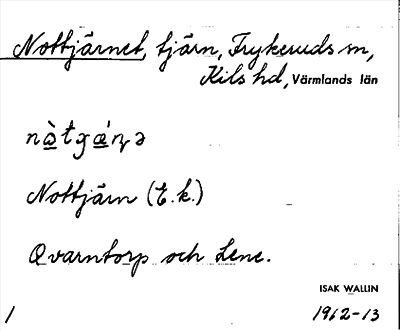 Nottjärnet, tjärn, Frykeruds sn,
Kils hd, Värmlands län
nòtgæ'ṇə
Nottjärn (E.k.)
Qvarntorp och Lene.
ISAK WALLIN
1 1912-13